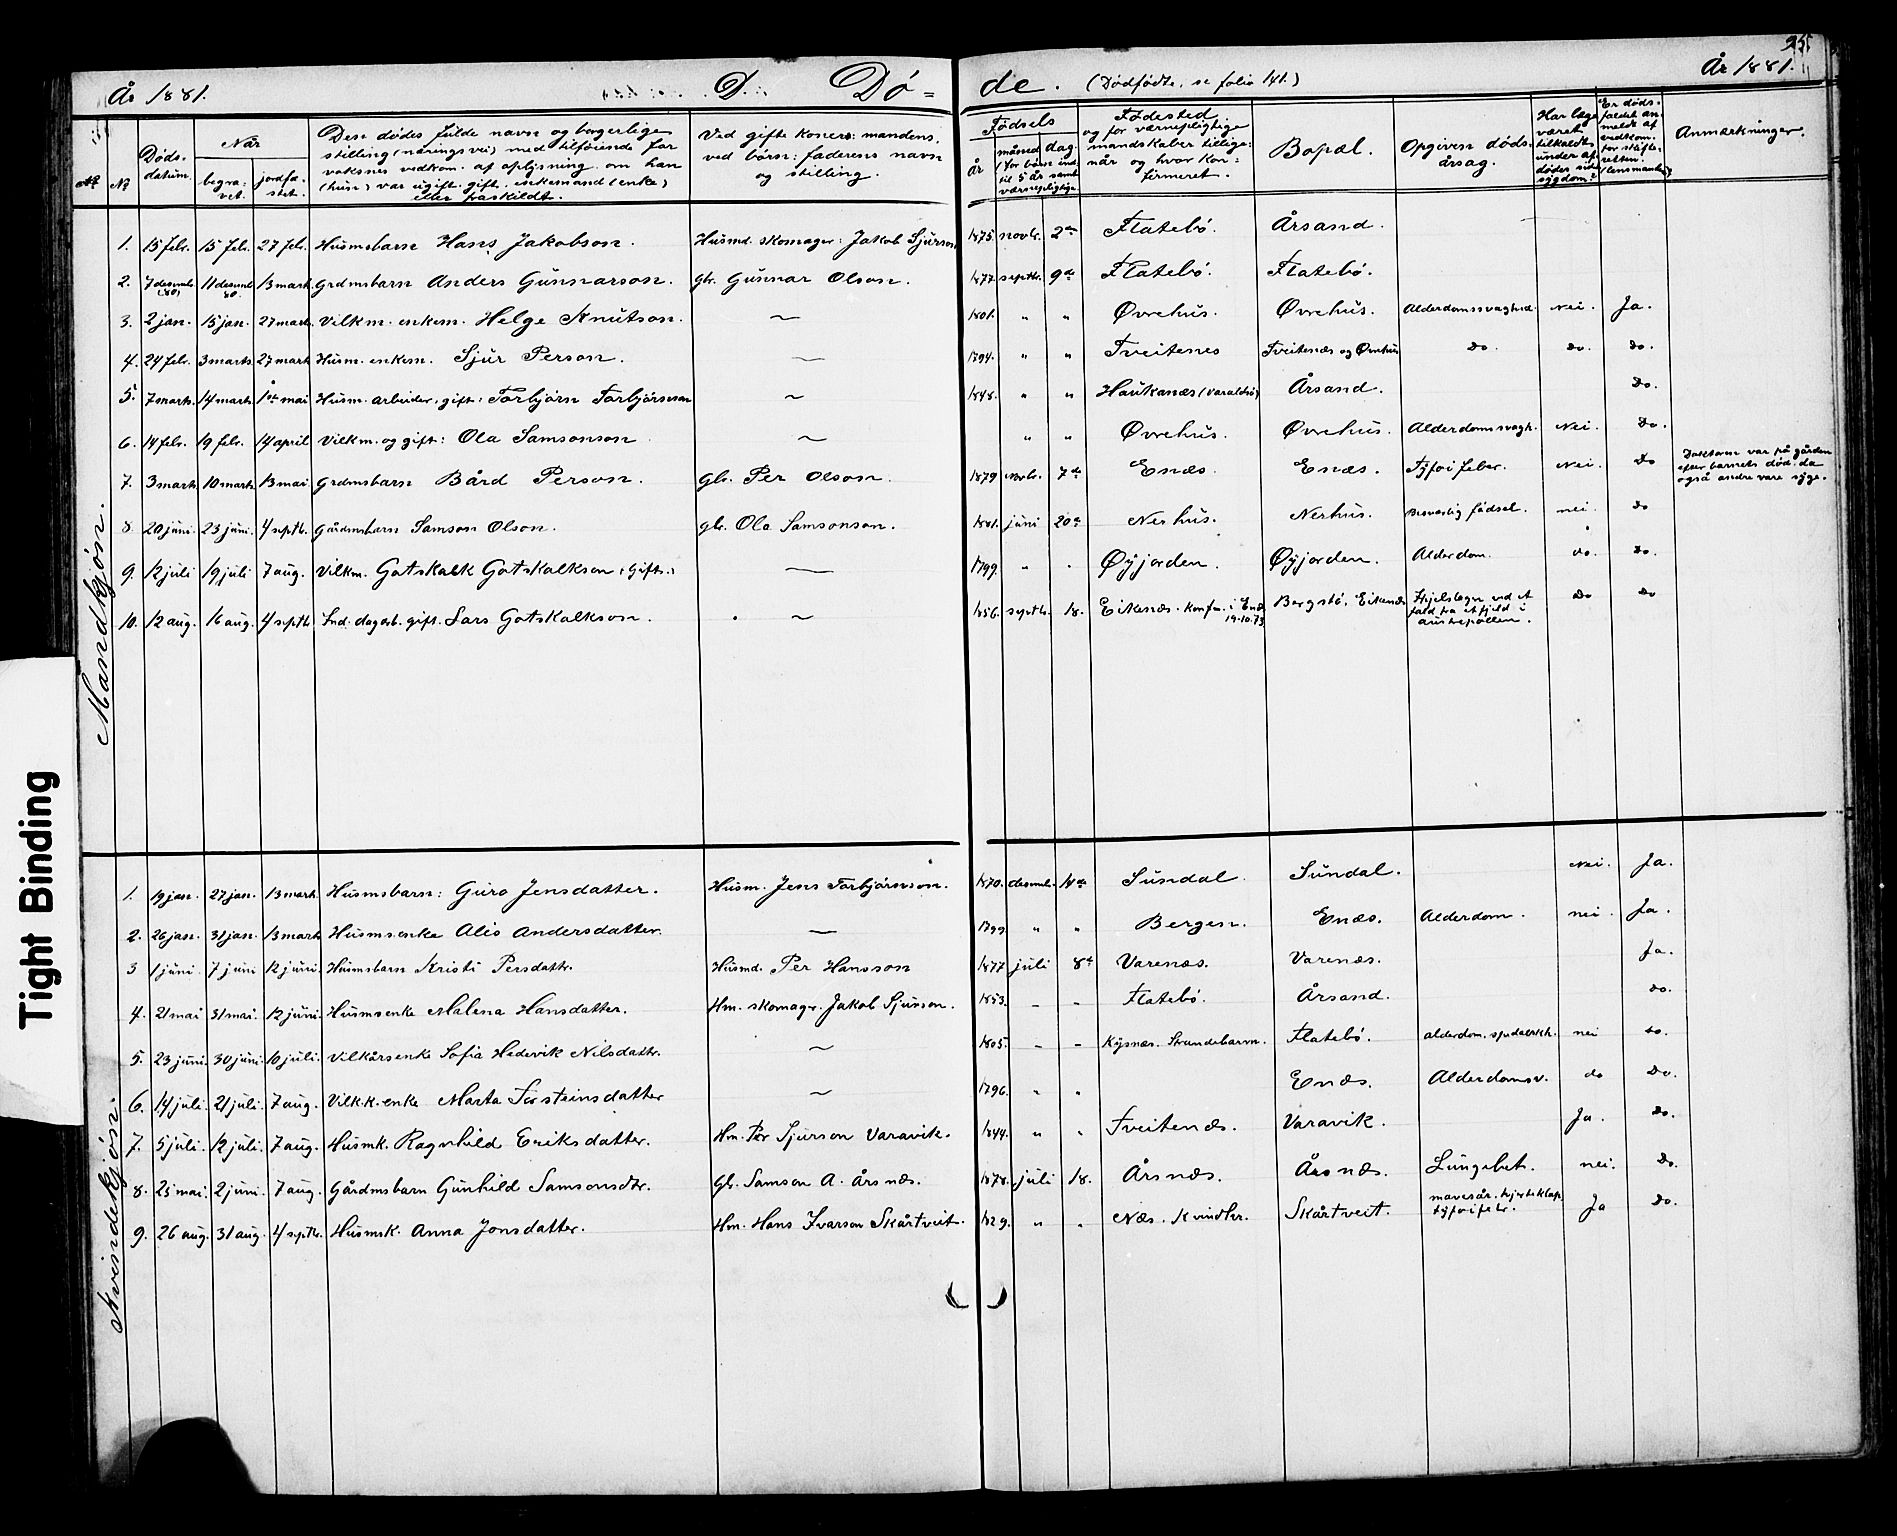 År 1881. D. Dø= de. (Dødfødte, se folio 141.) År 1881.
Nº Nº Døds-datum. Når begra-vet. jordfæ-stet.
Den dødes fulde navn og borgerlige
stilling (næringsvei) med tilføiende for
voksnes vedkom. af oplysning om han
(hun) var ugift, gift, enkemand (enke)
eller fraskildt.
Ved gifte koner: mandens,
ved børn: faderens navn
og stilling.
Fødsels år måned dag
(for børn ind-
til 5 år samt
værnepligtige
Fødested
og for værnepligtige
mandskaber tillige:
når og hvor kon-
firmeret.
Bopæl.
Opgiven døds-
årsag.
Har læge
været
tilkaldt
under af-
dødes sid-
sygdom?
Er døds-
faldet an-
meldt af
vedkom.
for skifte-
retten.
(lensmanden)
Anmærkninger.
Mandkjøn.
1. 15 febr. 15 febr. 27 febr. Husmsbarn Hans Jakobson. Husmd. skomager: Jakob Sjurson 1875. novbr. 2den Flatebø. Årsand.
2. 7 desembr. 1880, 11 desemb. 80. 13 mark. Grdmsbarn Anders Gunnarson. gbr. Gunnar Olson. 1877. septbr. 9de Flatebø. Flatebø.
3. 2 jan. 15 jan. 27 mark. Vilkm. enkem. Helge Knutson. ~ 1801. " " Øvrehus. Øvrehus. Alderdomssvaghed. Nei. Ja.
4. 24 febr. 3 marts. 27 mark Husm. enkem. Sjur Person. ~ 1794. " " Tveitenes Tveitenæs og Øvrehus do. do. do.
5. 7 marts. 14 marts. 1ste mai Husm. arbeider, gift: Torbjørn Torbjørnson ~ 1848. " " Haukanæs (Varaldsø) Årsand. Do.
6. 14 febr. 19 febr. 14 april Vilkm. og gift: Ola Samsonson ~ " " Øvrehus. Øvrehus. Alderdomssvagh. Nei. Do.
7. 3 marts 10 marts 13 mai Grdmsbarn Bård Person. gbr. Per Olson. 1879 novbr. 7de Enæs. Enæs. Tyfoifeber. Nei. Do Doktoren var på gården
efter barnets død, da
også andre vare syge.
8. 20 juni. 23 juni. 4 septb. Gårdmsbarn Samson Olson. gbr. Ola Samsonson. 1881. juni 20de Nerhus. Nerhus. Besværlig fødsel. nei. do
9. 12 juli 19 juli 7 aug. Vilkm. Gotskalk Gotskalkson (gift.) ~ 1799. " . Øyjorden. Øyjorden. Alderdom. do. Do.
10. 12 aug. 16 aug. 4 septb. Ind. dagarb. gift. Lars Gotskalkson. ~ 1856. septbr. 18. Eikenæs. konfm. i Enæs
19.10.73 Bergstø, Eikenæs Ihjelslagen ved et
fald fra et fjeld i
austrepollen. Do Do
Kvindekjøn.
1. 19 jan. 27 jan. 13 mark. Husmsbarn: Guro Jensdatter. Husm. Jens Torbjørnson. 1870. desembr. 14de Sundal. Sundal. Nei. Ja.
2. 26 jan. 31 jan. 13 marts Husmsenke Alis Andersdatter. ~ 1799. " " Bergen. Enæs. Alderdom. nei. Ja.
3 1 juni. 7 juni 12 juni. Husmsbarn Kristi Persdatr. Husmd. Per Hansson 1877 juli 8de Varenæs. Varenæs. Ja.
4. 21 mai 31 mai. 12 juni. Husmsenke Malena Hansdatter. Hm. skomager. Jakob Sjurson. 1853. - - Flatebø. Årsand. do.
5. 23 juni. 30 juni. 10 juli. Vilkårsenke Sofia Hedevik Nilsdatr. ~ 1805. - - Kysnæs. Strandebarm. Flatebø. alderdom. spedalskh. nei do.
6. 14 juli. 21 juli. 7 aug. Vilk.k. enke Marta Torsteinsdatter ~ 1796. " " Enæs. Alderdomsv. do Do.
7. 5 juli. 12 juli. 7 aug. Husmk. Ragnhild Eriksdatter. Hm. Per Sjurson Varavik. 1844. " . Tveitenæs. Varavik. Ja. Do.
8. 25 mai. 2 juni. 7 aug. Gårdmsbarn Gunhild Samsonsdtr. Gbr. Samson A. Årsnæs. 1878. juli 18. Årsnæs. Årsnæs. Lungebet. nei. Do.
9. 26 aug. 31 aug. 4 septbr. Husmsk. Anna Jonsdatter. Hm. Hans Ivarson Skårtveit. 1829. " . Næs. Kvindhr. Skårtveit. mavesår. hjerteklap.
tyfoifebr. Ja Do.
Tight Binding